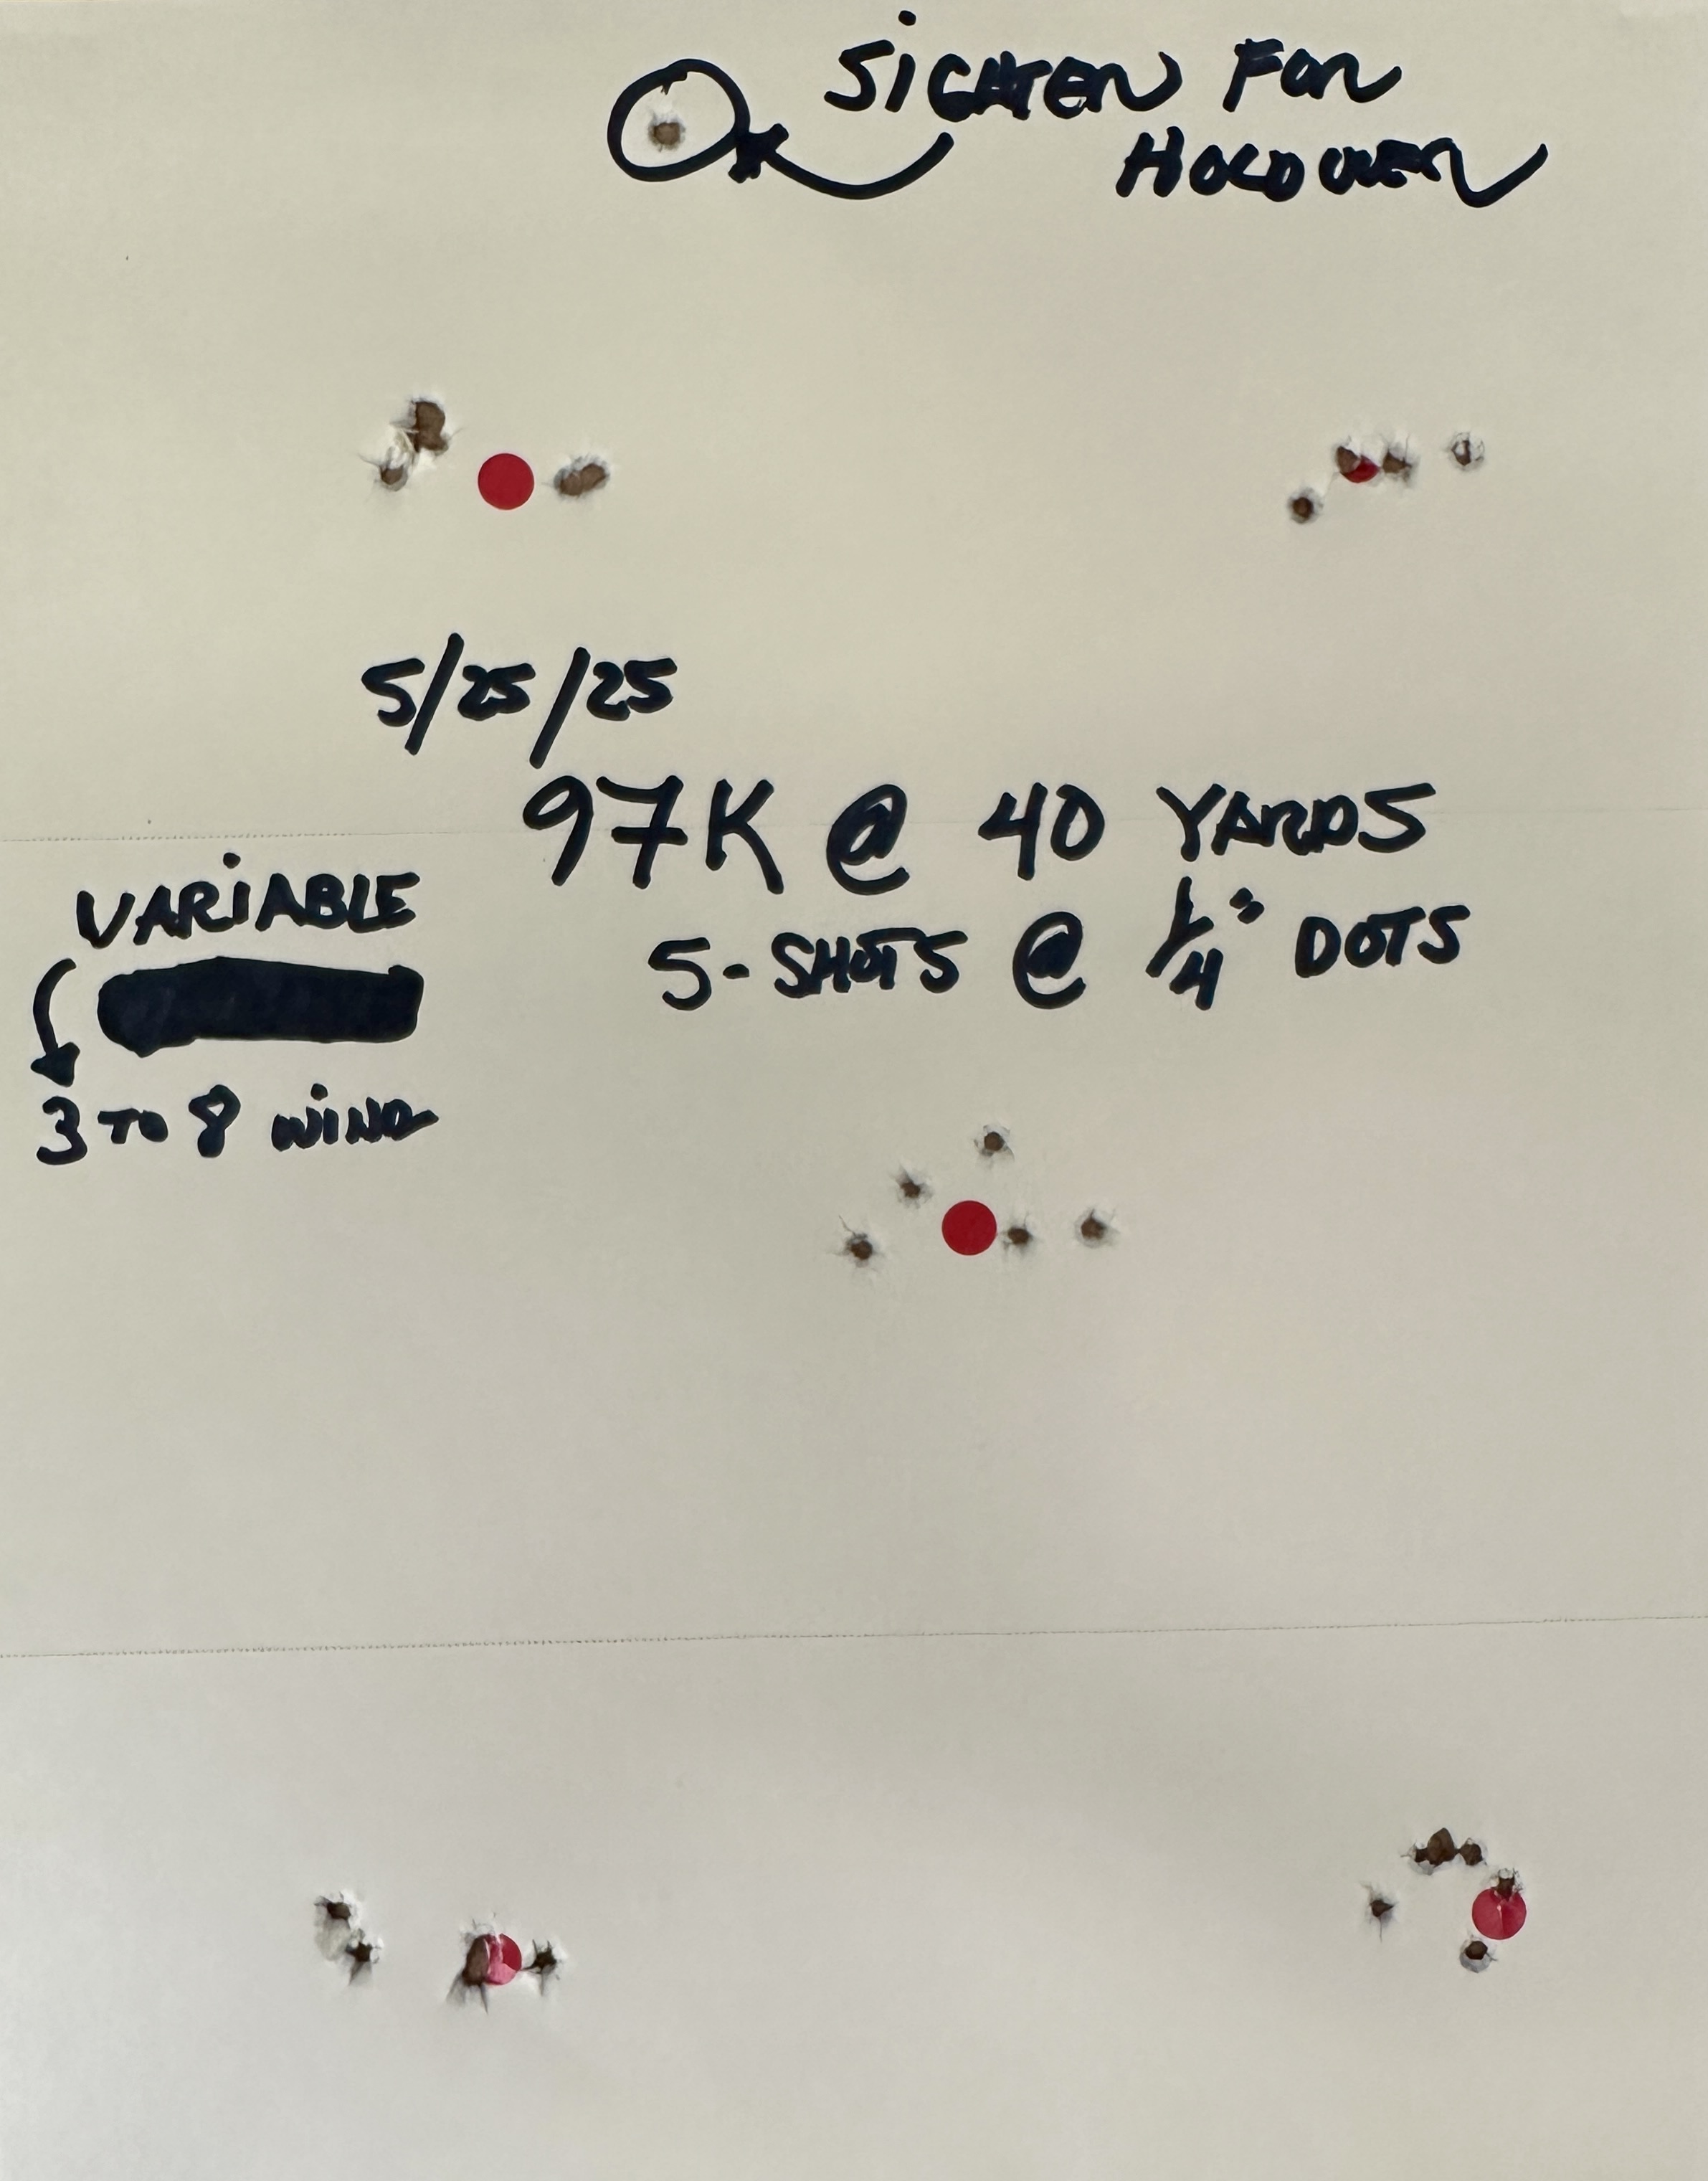 SiGHTER FOR
HOLDOVER
5/25/25
97K @ 40 YARDS
5-SHOTS @ 1/4" DOTS
VARiABLE
3 TO 8 WiND